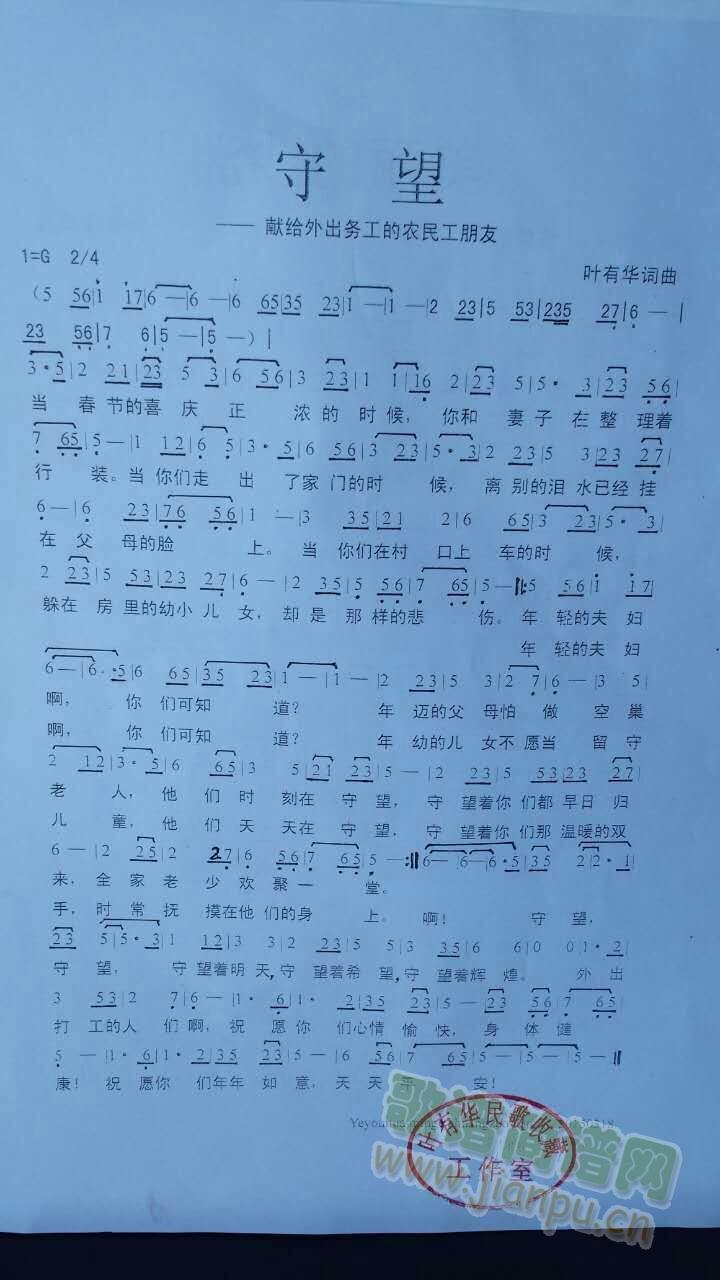 守 望
—— 献给外出务工的农民工朋友
1=G 2/4
叶有华词曲
(5 56|1 17|6 —|6 — 6 65|35 23|1 —|1 —|2 23|5 53|235 27|6 —|
23 56|7 6|5 —|5 —)|
3·5|2 21|23 5 3|6 56|3 23|1 1|16 2|23 5|5· 3|23 56|
当 春节的喜 庆 正 浓的时候, 你和 妻子在整理着
7 65|5 —|1 12|6 5|3·5|6 56|3 23|5·3|2 23|5 3|23 27|
行 装。当你们走 出 了家门的时 候, 离别的泪水已经挂
6 —|6 23|76 56|1 —|3 35|21 2|6 65|3 23|5· 3|
在父 母的脸 上。 当 你们在村 口上 车的时 候,
2 23|5 53|23 27|6 —|2 35|5 56|7 65|5 —|:5 56|1 17|
躲在 房里的幼小儿女, 却是那样的悲 伤。年 轻的夫妇
年 轻的夫妇
6 —|6·5|6 65|35 23|1 —|1 —|2 23|5 3|27 6|— 3 5|
啊, 你 们可知 道? 年 迈的父 母怕 做 空巢
啊, 你 们可知 道? 年 幼的儿 女不愿当 留守
2 12|3·5|6 65|3 5|21 23|5 —|2 23|53|23 27|
老 人,他 们时 刻在 守望, 守 望着你们都早日归
儿 童,他 们天 天在 守望, 守 望着你们那温暖的双
6 —|2 25|2 27|6 56|7 65|5 —:|6—|6—|6·5|35 22·1|
来,全家老 少欢聚一 堂。
手,时常抚 摸在他们的身 上。 啊! 守 望,
23 5|5·3|1 12|3 3|2 35|5 3|35|6 6|0 01·2|
守 望, 守 望着明天,守 望着希望,守望着辉煌。 外出
3 53|2 7|6 —|1· 6|1· 2|35 23|5 —|23 56|7 65|
打 工的人 们啊,祝 愿你 们心情 愉快, 身 体 健
5 —|1· 6|1· 2|35 23|5 —|6 56|7 65|5 —|5 —‖
康! 祝 愿你 们年年 如意,天天平 安!
叶有华民歌收集
工作室
歌谱简谱网
www.jianpu.cn